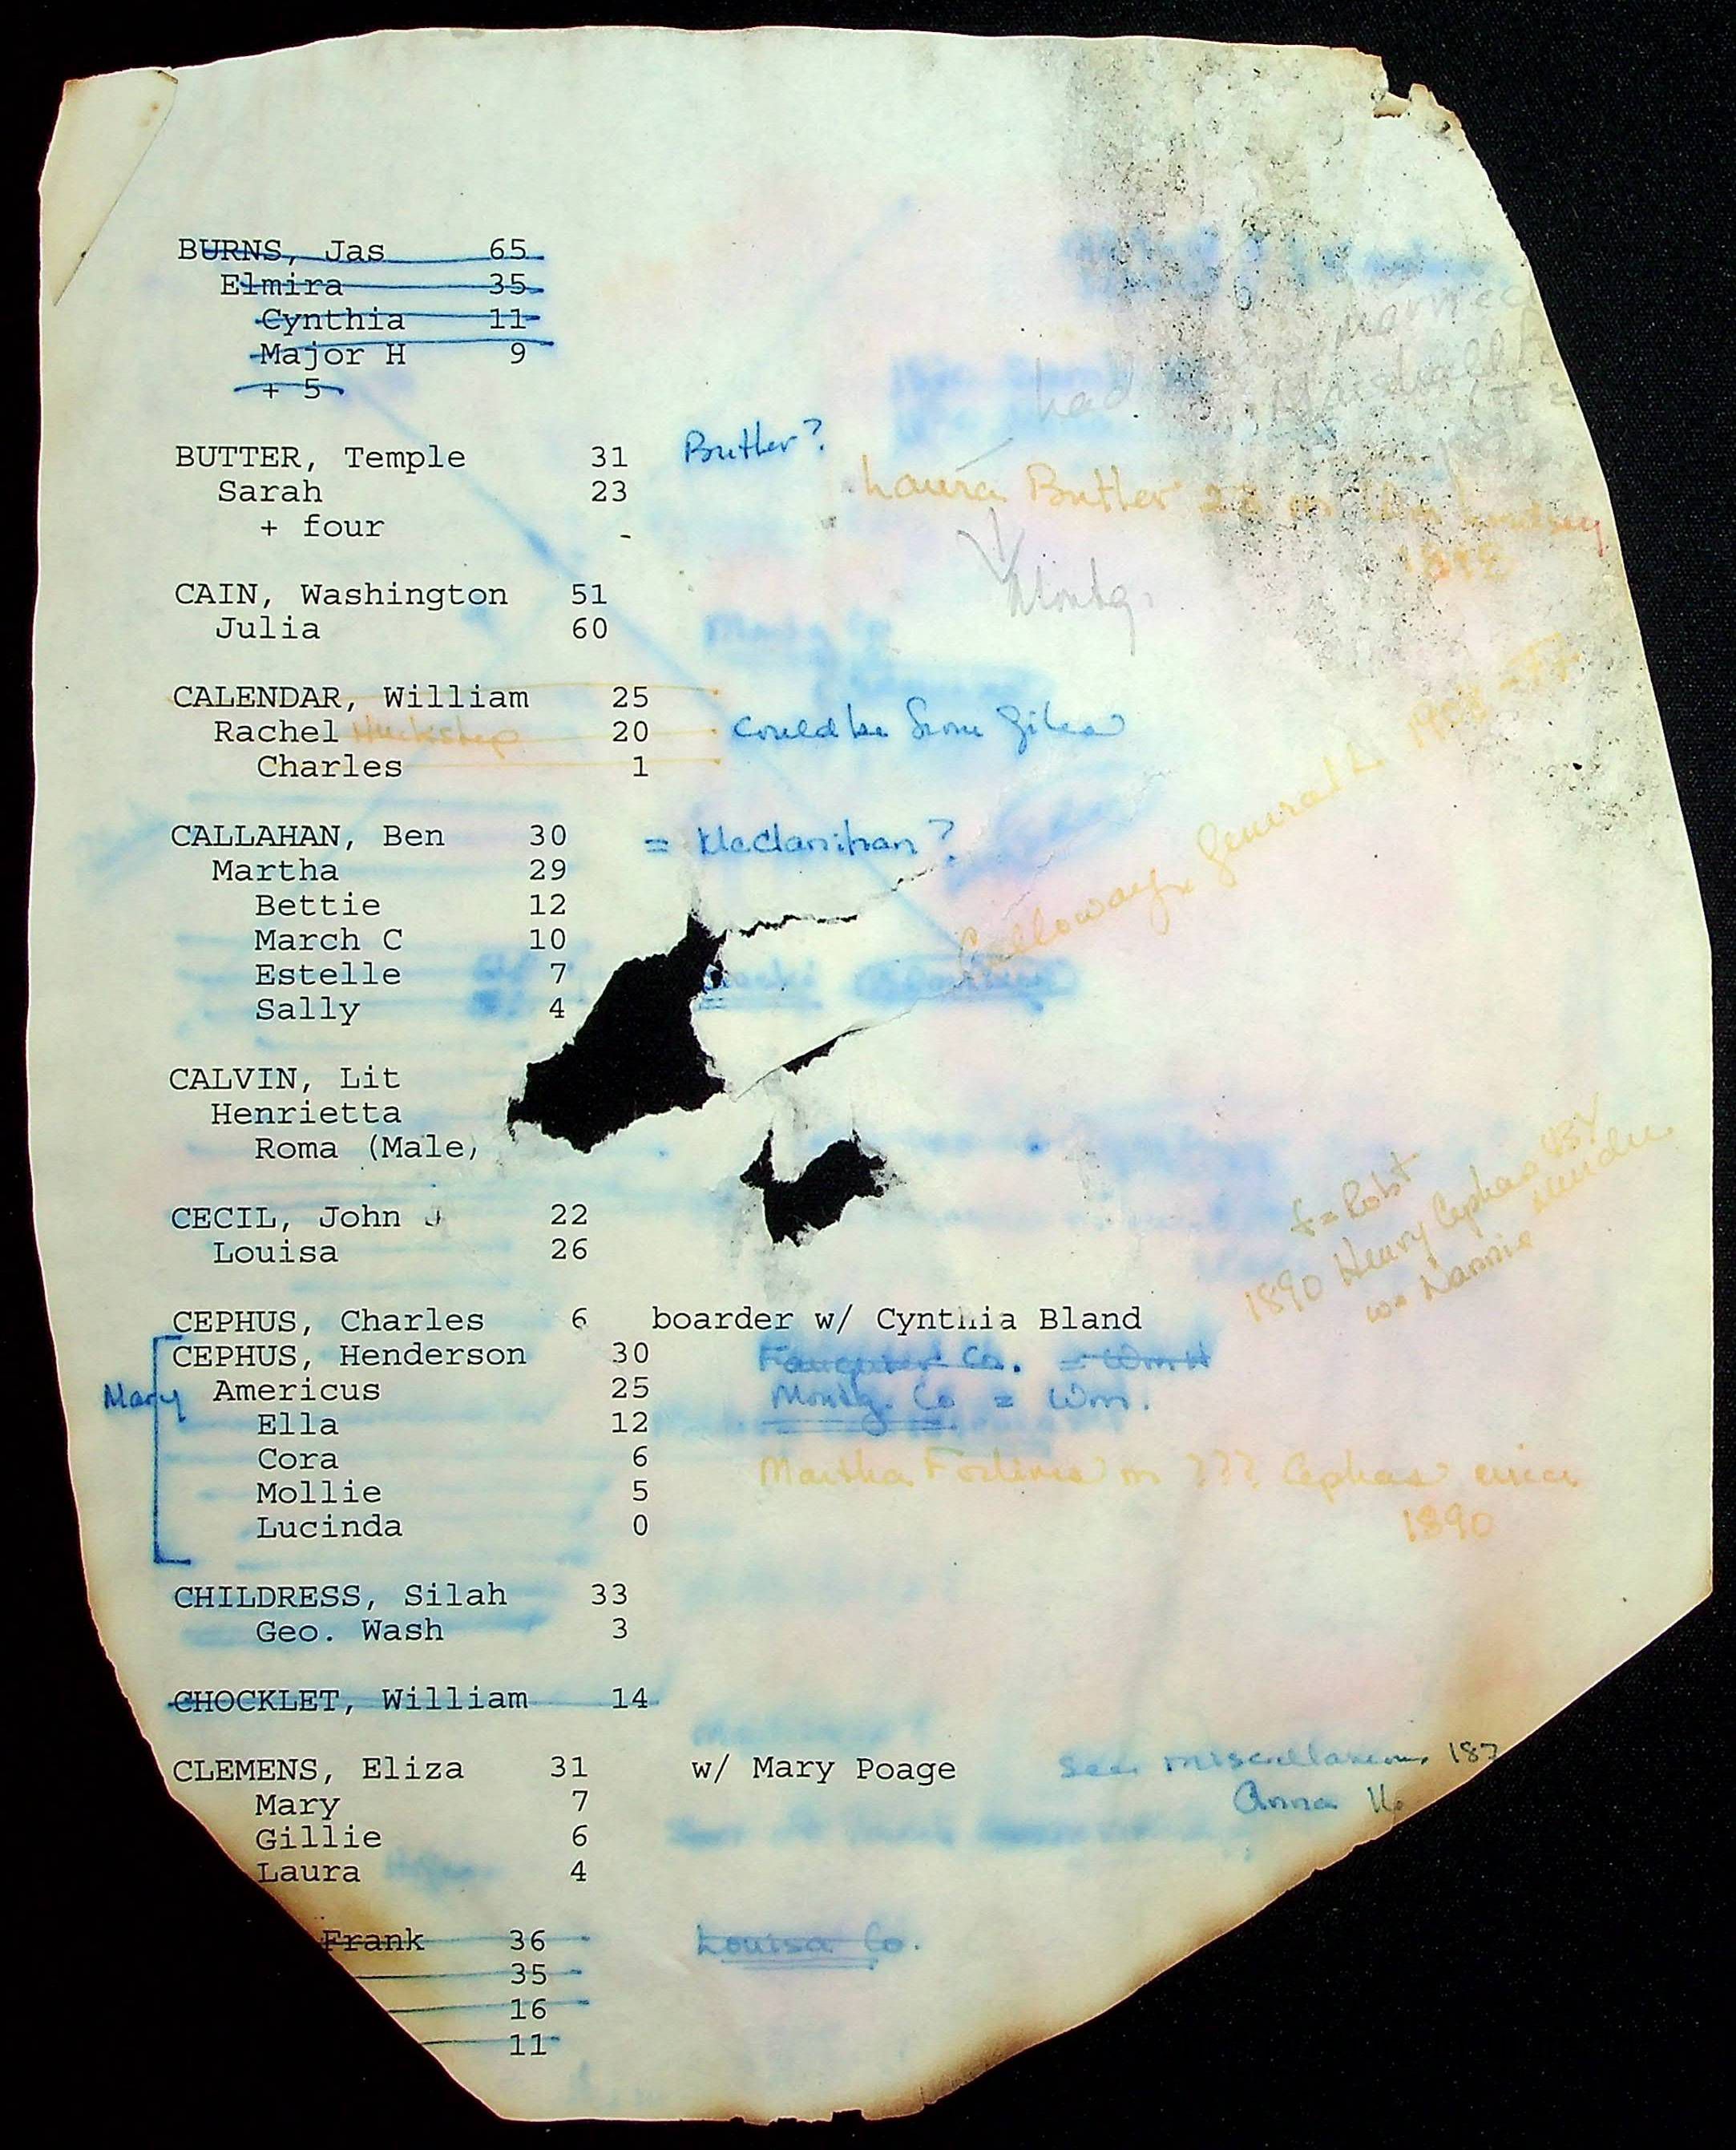 BURNS, Jas 65
Elmira 35
Cynthia 11
Major H 9
+ 5
married
had Marshall
BUTTER, Temple 31 Butler?
Sarah 23 Laura Butler 23 m
+ four -
1898
Montg.
CAIN, Washington 51
Julia 60
CALENDAR, William 25
Rachel Huckstep 20 could be from Giles
Charles 1
Calloway, General L 1908
CALLAHAN, Ben 30 = McClanihan?
Martha 29
Bettie 12
March C 10
Estelle 7
Sally 4
CALVIN, Lit
Henrietta
Roma (Male)
CECIL, John J 22
Louisa 26
f = Robt
1890 Henry Cephas
w = Nannie
CEPHUS, Charles 6 boarder w/ Cynthia Bland
CEPHUS, Henderson 30 Fauquier Co. = Wm H
Mary Americus 25 Montg. Co = Wm.
Ella 12
Cora 6
Mollie 5 Martha m ??? Cephas circa
Lucinda 0 1890
CHILDRESS, Silah 33
Geo. Wash 3
CHOCKLET, William 14
CLEMENS, Eliza 31 w/ Mary Poage See miscellaneous 187
Mary 7 Anna 16
Gillie 6
Laura 4
Frank 36 Louisa Co.
35
16
11